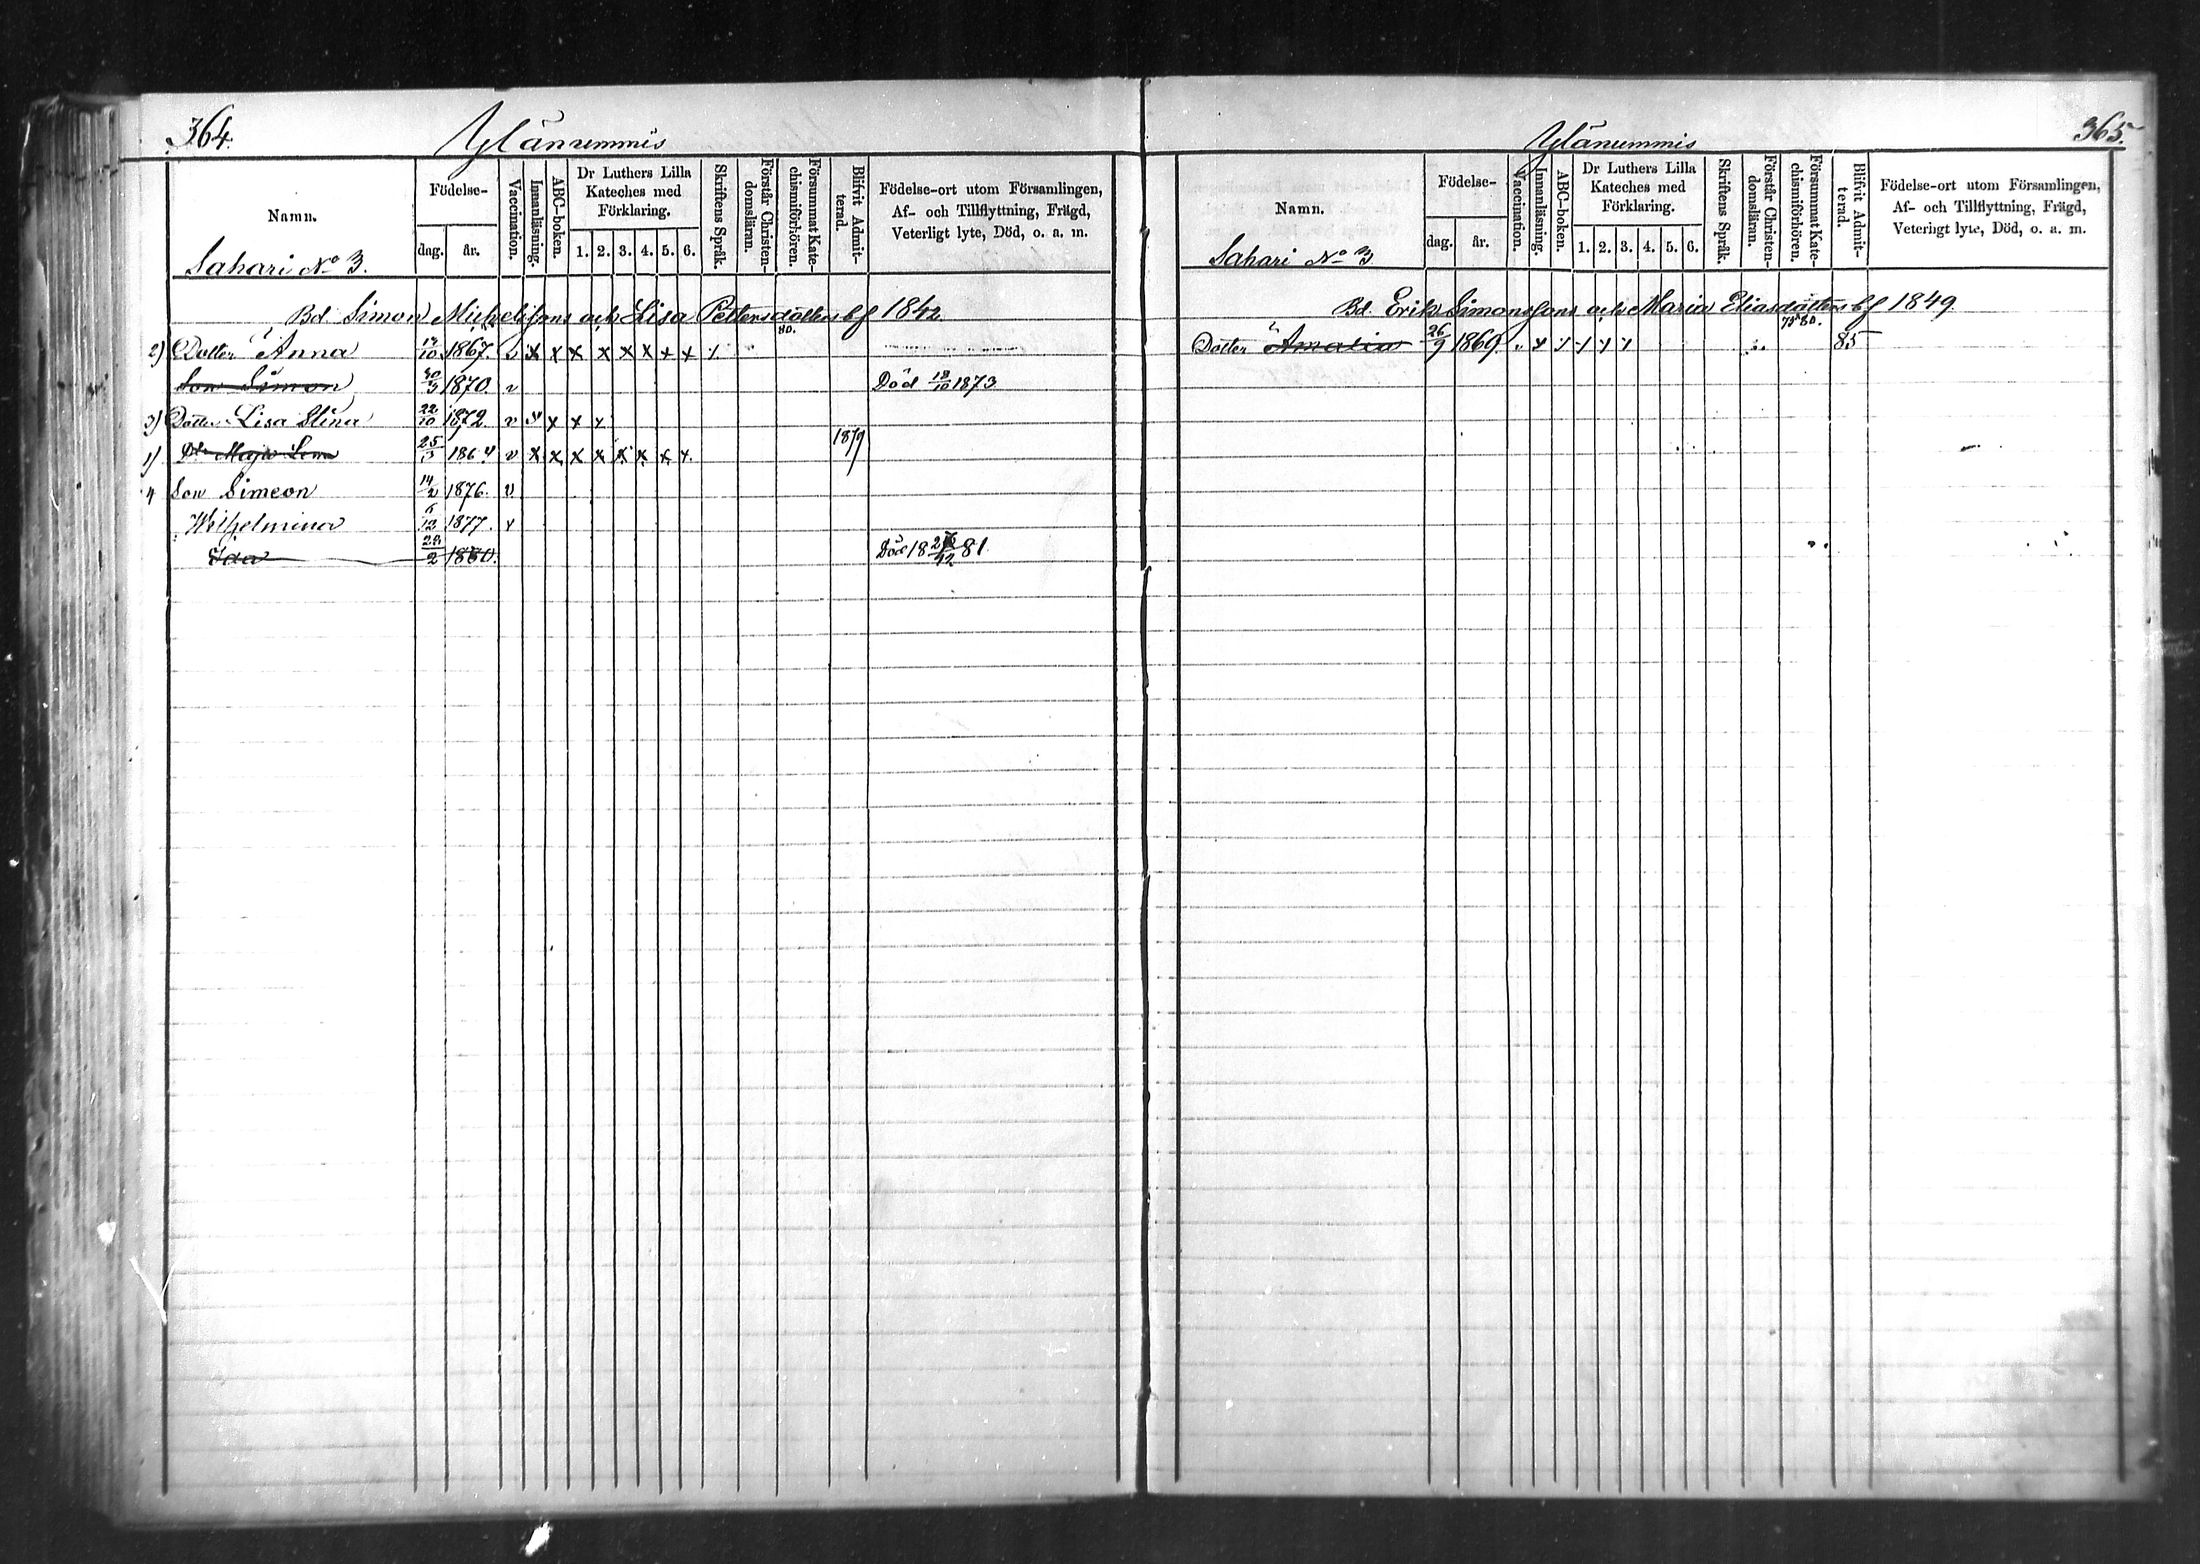 364.
Ylänummis
Namn.
Födelse-
dag.
år.
Vaccination.
Innanläsning.
ABC-boken.
Dr Luthers Lilla
Kateches med
Förklaring.
1. 2. 3. 4. 5. 6.
Skriftens Språk.
Förstår Christen-
domsläran.
Försummat Kate-
chismiförhören.
Blifvit Admit-
terad.
Födelse-ort utom Församlingen,
Af- och Tillflyttning, Frägd,
Veterligt lyte, Död, o. a. m.
Sahari No 3.
Bd. Simon Michelssons och Lisa Pettersdotters bf 1842.
80.
2) Dotter Anna 17/10 1867. v x x x x x x x x
Son Simon 30/3 1870. v Död 18/10 1873
3) Dotter Lisa Stina 22/10 1872. v x x x
1) Dr Maja Lena 25/3 1864 v x x x x x x x x 1879
4 Son Simeon 14/2 1876. v
Wilhelmina 6/12 1877. v
Ida 22/2 1880. Död 18 26/12 81.
365.
Ylänummis
Namn.
Födelse-
dag.
år.
Vaccination.
Innanläsning.
ABC-boken.
Dr Luthers Lilla
Kateches med
Förklaring.
1. 2. 3. 4. 5. 6.
Skriftens Språk.
Förstår Christen-
domsläran.
Försummat Kate-
chismiförhören.
Blifvit Admit-
terad.
Födelse-ort utom Församlingen,
Af- och Tillflyttning, Frägd,
Veterigt lyte, Död, o. a. m.
Sahari No 3
Bd. Erik Simonssons och Maria Eliasdotters bf 1849.
75 80.
Dotter Amalia 26/9 1869. v x x x x x 85